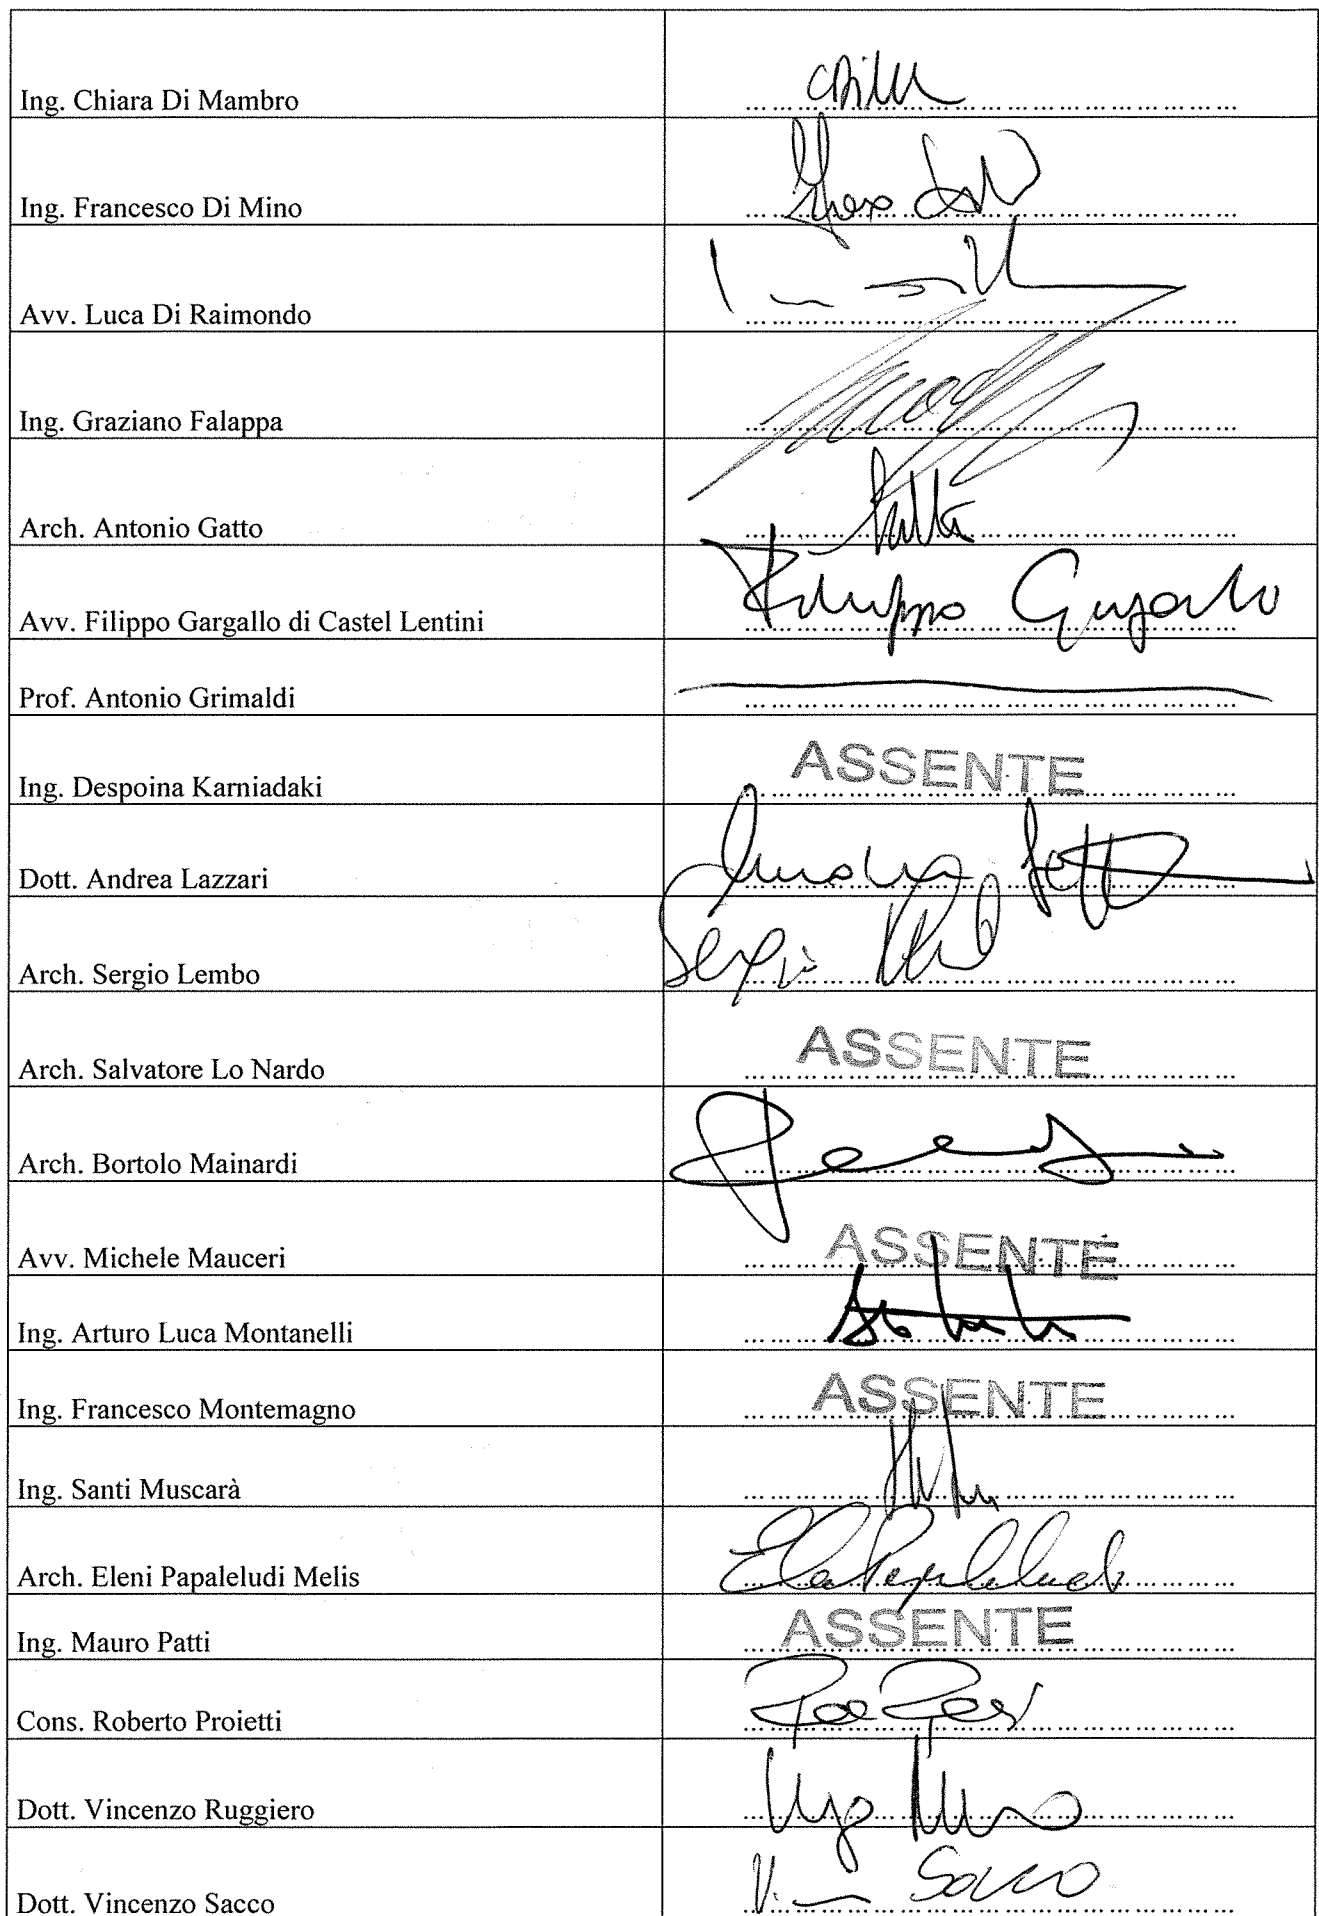 Ing. Chiara Di Mambro
Ing. Francesco Di Mino
Avv. Luca Di Raimondo
Ing. Graziano Falappa
Arch. Antonio Gatto
Avv. Filippo Gargallo di Castel Lentini Filippo Gargallo
Prof. Antonio Grimaldi
Ing. Despoina Karniadaki ASSENTE
Dott. Andrea Lazzari
Arch. Sergio Lembo Sergio
Arch. Salvatore Lo Nardo ASSENTE
Arch. Bortolo Mainardi
Avv. Michele Mauceri ASSENTE
Ing. Arturo Luca Montanelli
Ing. Francesco Montemagno ASSENTE
Ing. Santi Muscarà
Arch. Eleni Papaleludi Melis
Ing. Mauro Patti ASSENTE
Cons. Roberto Proietti
Dott. Vincenzo Ruggiero
Dott. Vincenzo Sacco Sacco